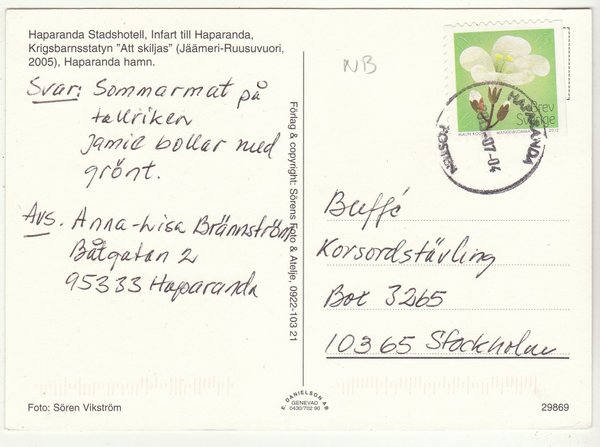 Haparanda Stadshotell, Infart till Haparanda,
Krigsbarnsstatyn "Att skiljas" (Jäämeri-Ruusuvuori,
2005), Haparanda hamn.
NB
Svar: Sommarmat på
tallriken
Jamie bollar med
grönt.
Avs. Anna-Lisa Brännström
Båtgatan 2
95333 Haparanda
Förlag & copyright: Sörens Foto & Atelje, 0922-103 21
Brev
Sverige
2012
HAPARANDA
-07-04
POSTEN
Buffé
Korsordstävling
Box 3265
10365 Stockholm
Foto: Sören Vikström
E. DANIELSON AB
GENEVAD
0430/702 90
29869